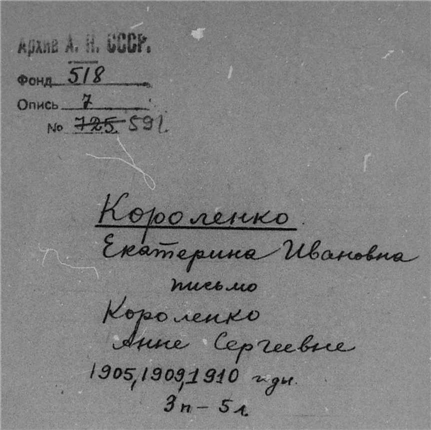 Архив А. Н. СССР.
Фонд 518
Опись 7
№ 725 591.
Короленко
Екатерина Ивановна
письмо
Короленко
Анне Сергеевне
1905, 1909, 1910 г.ды.
3п – 5л.